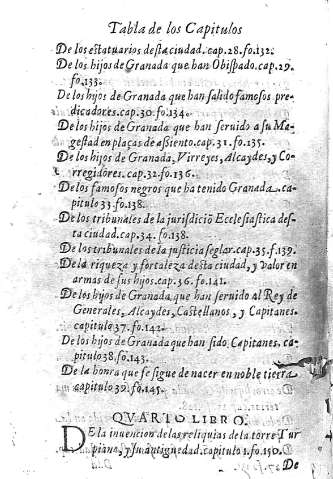 Tabla de los Capitulos
De los estatuarios desta ciudad. cap. 28. fo. 132.
De los hijos de Granada que han Obispado. cap. 29.
fo. 133.
De los hijos de Granada que han salido famosos pre-
dicadores. cap. 30. fo. 134.
De los hijos de Granada que han seruido a su Ma-
gestad en plaças de assiento. cap. 31. fo. 135.
De los hijos de Granada, Virreyes, Alcaydes, y Co-
rregidores. cap. 32. fo. 136.
De los famosos negros que ha tenido Granada. ca-
pitulo 33. fo. 138.
De los tribunales de la jurisdiciõ Ecclesiastica des-
ta ciudad. cap. 34. fo. 138.
De los tribunales de la justicia seglar. cap. 35. f. 139.
De la riqueza y fortaleza desta ciudad, y valor en
armas de sus hijos. cap. 36. fo. 141.
De los hijos de Granada que han seruido al Rey de
Generales, Alcaydes, Castellanos, y Capitanes.
capitulo 37. fo. 142.
De los hijos de Granada que han sido Capitanes. ca-
pitulo 38. fo. 143.
De la honra que se sigue de nacer en noble tierra
capitulo 39. fo. 145.
QVARTO LIBRO.
De la inuencion de las reliquias de la torre Tur
piana, y su antiguedad. capitulo 1. fo. 150.
De